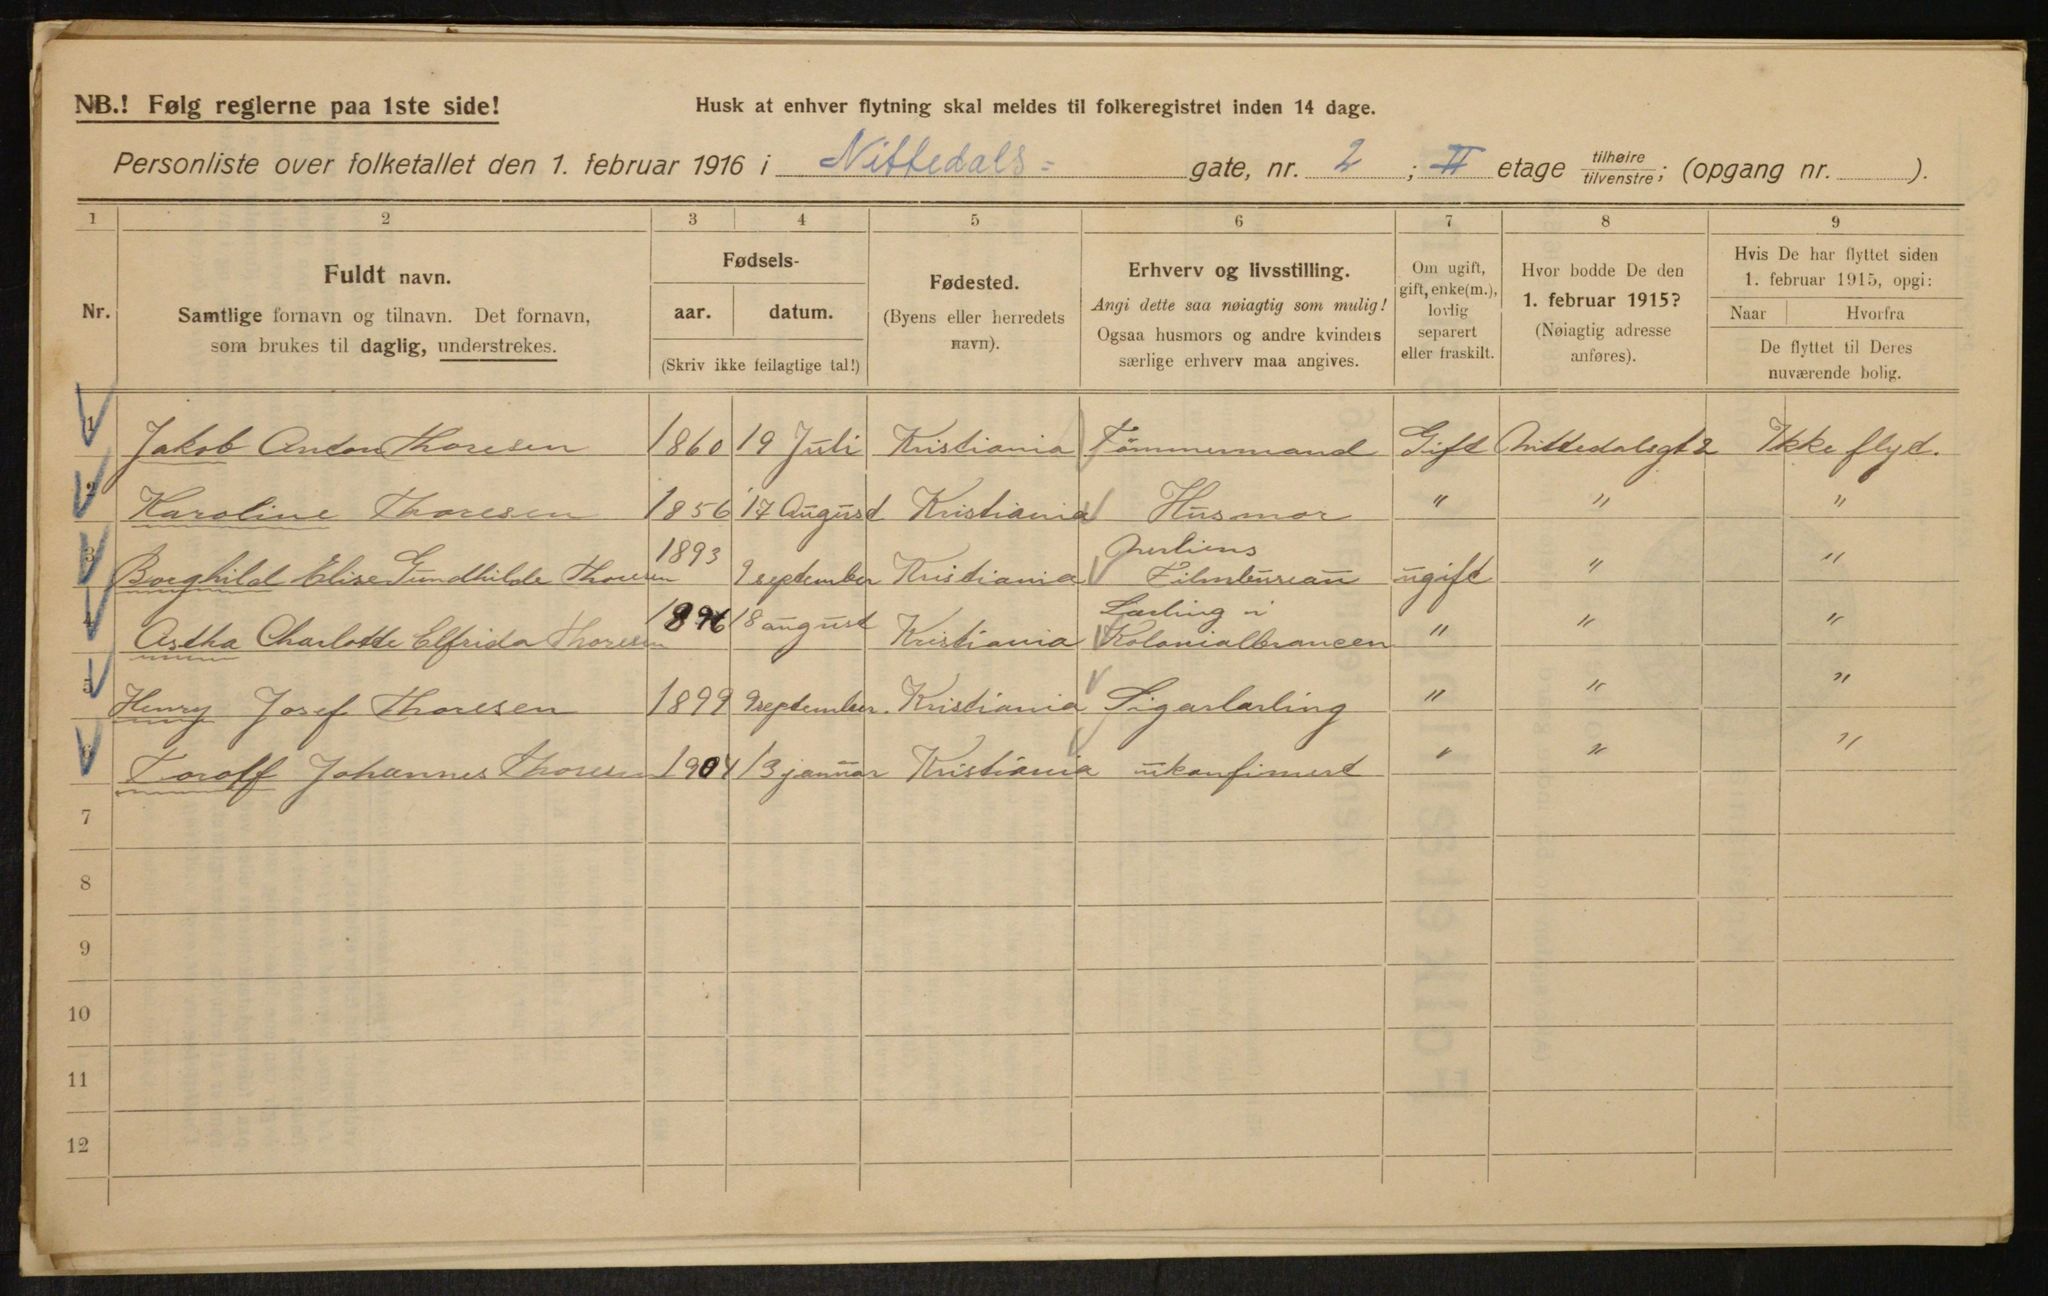 NB.! Følg reglerne paa 1ste side!
Husk at enhver flytning skal meldes til folkeregistret inden 14 dage.
Personliste over folketallet den 1. februar 1916 i Nittedals- gate, nr. 2 ; II etage tilhøire/tilvenstre; (opgang nr. ).
1 2 3 4 5 6 7 8 9
Nr.
Fuldt navn.
Samtlige fornavn og tilnavn. Det fornavn,
som brukes til daglig, understrekes.
Fødsels-
aar. datum.
(Skriv ikke feilagtige tal!)
Fødested.
(Byens eller herredets
navn).
Erhverv og livsstilling.
Angi dette saa nøiagtig som mulig!
Ogsaa husmors og andre kvinders
særlige erhverv maa angives.
Om ugift,
gift, enke(m.),
lovlig
separert
eller fraskilt.
Hvor bodde De den
1. februar 1915?
(Nøiagtig adresse
anføres).
Hvis De har flyttet siden
1. februar 1915, opgi:
Naar Hvorfra
De flyttet til Deres
nuværende bolig.
1 Jakob Anton Thoresen 1860 19 Juli Kristiania Tömmermand Gift Nittedalsgt 2 Ikke flyt.
2 Karoline Thoresen 1856 17 August Kristiania Husmor " " "
3 Borghild Elise Gundhilde Thoresen 1893 9 september Kristiania Filmbureau ugift " "
4 Astha Charlotte Elfrida Thoresen 1896 18 august Kristiania Lærling i Kolonialbrancen " " "
5 Henry Josef Thoresen 1899 9 september Kristiania Sigarlærling " " "
6 Toroff Johannes Thoresen 1904 13 januar Kristiania ukonfimert " " "
7
8
9
10
11
12